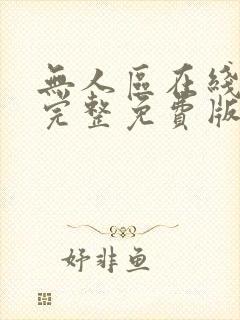 無人區在綫
完整免費版
妤非鱼